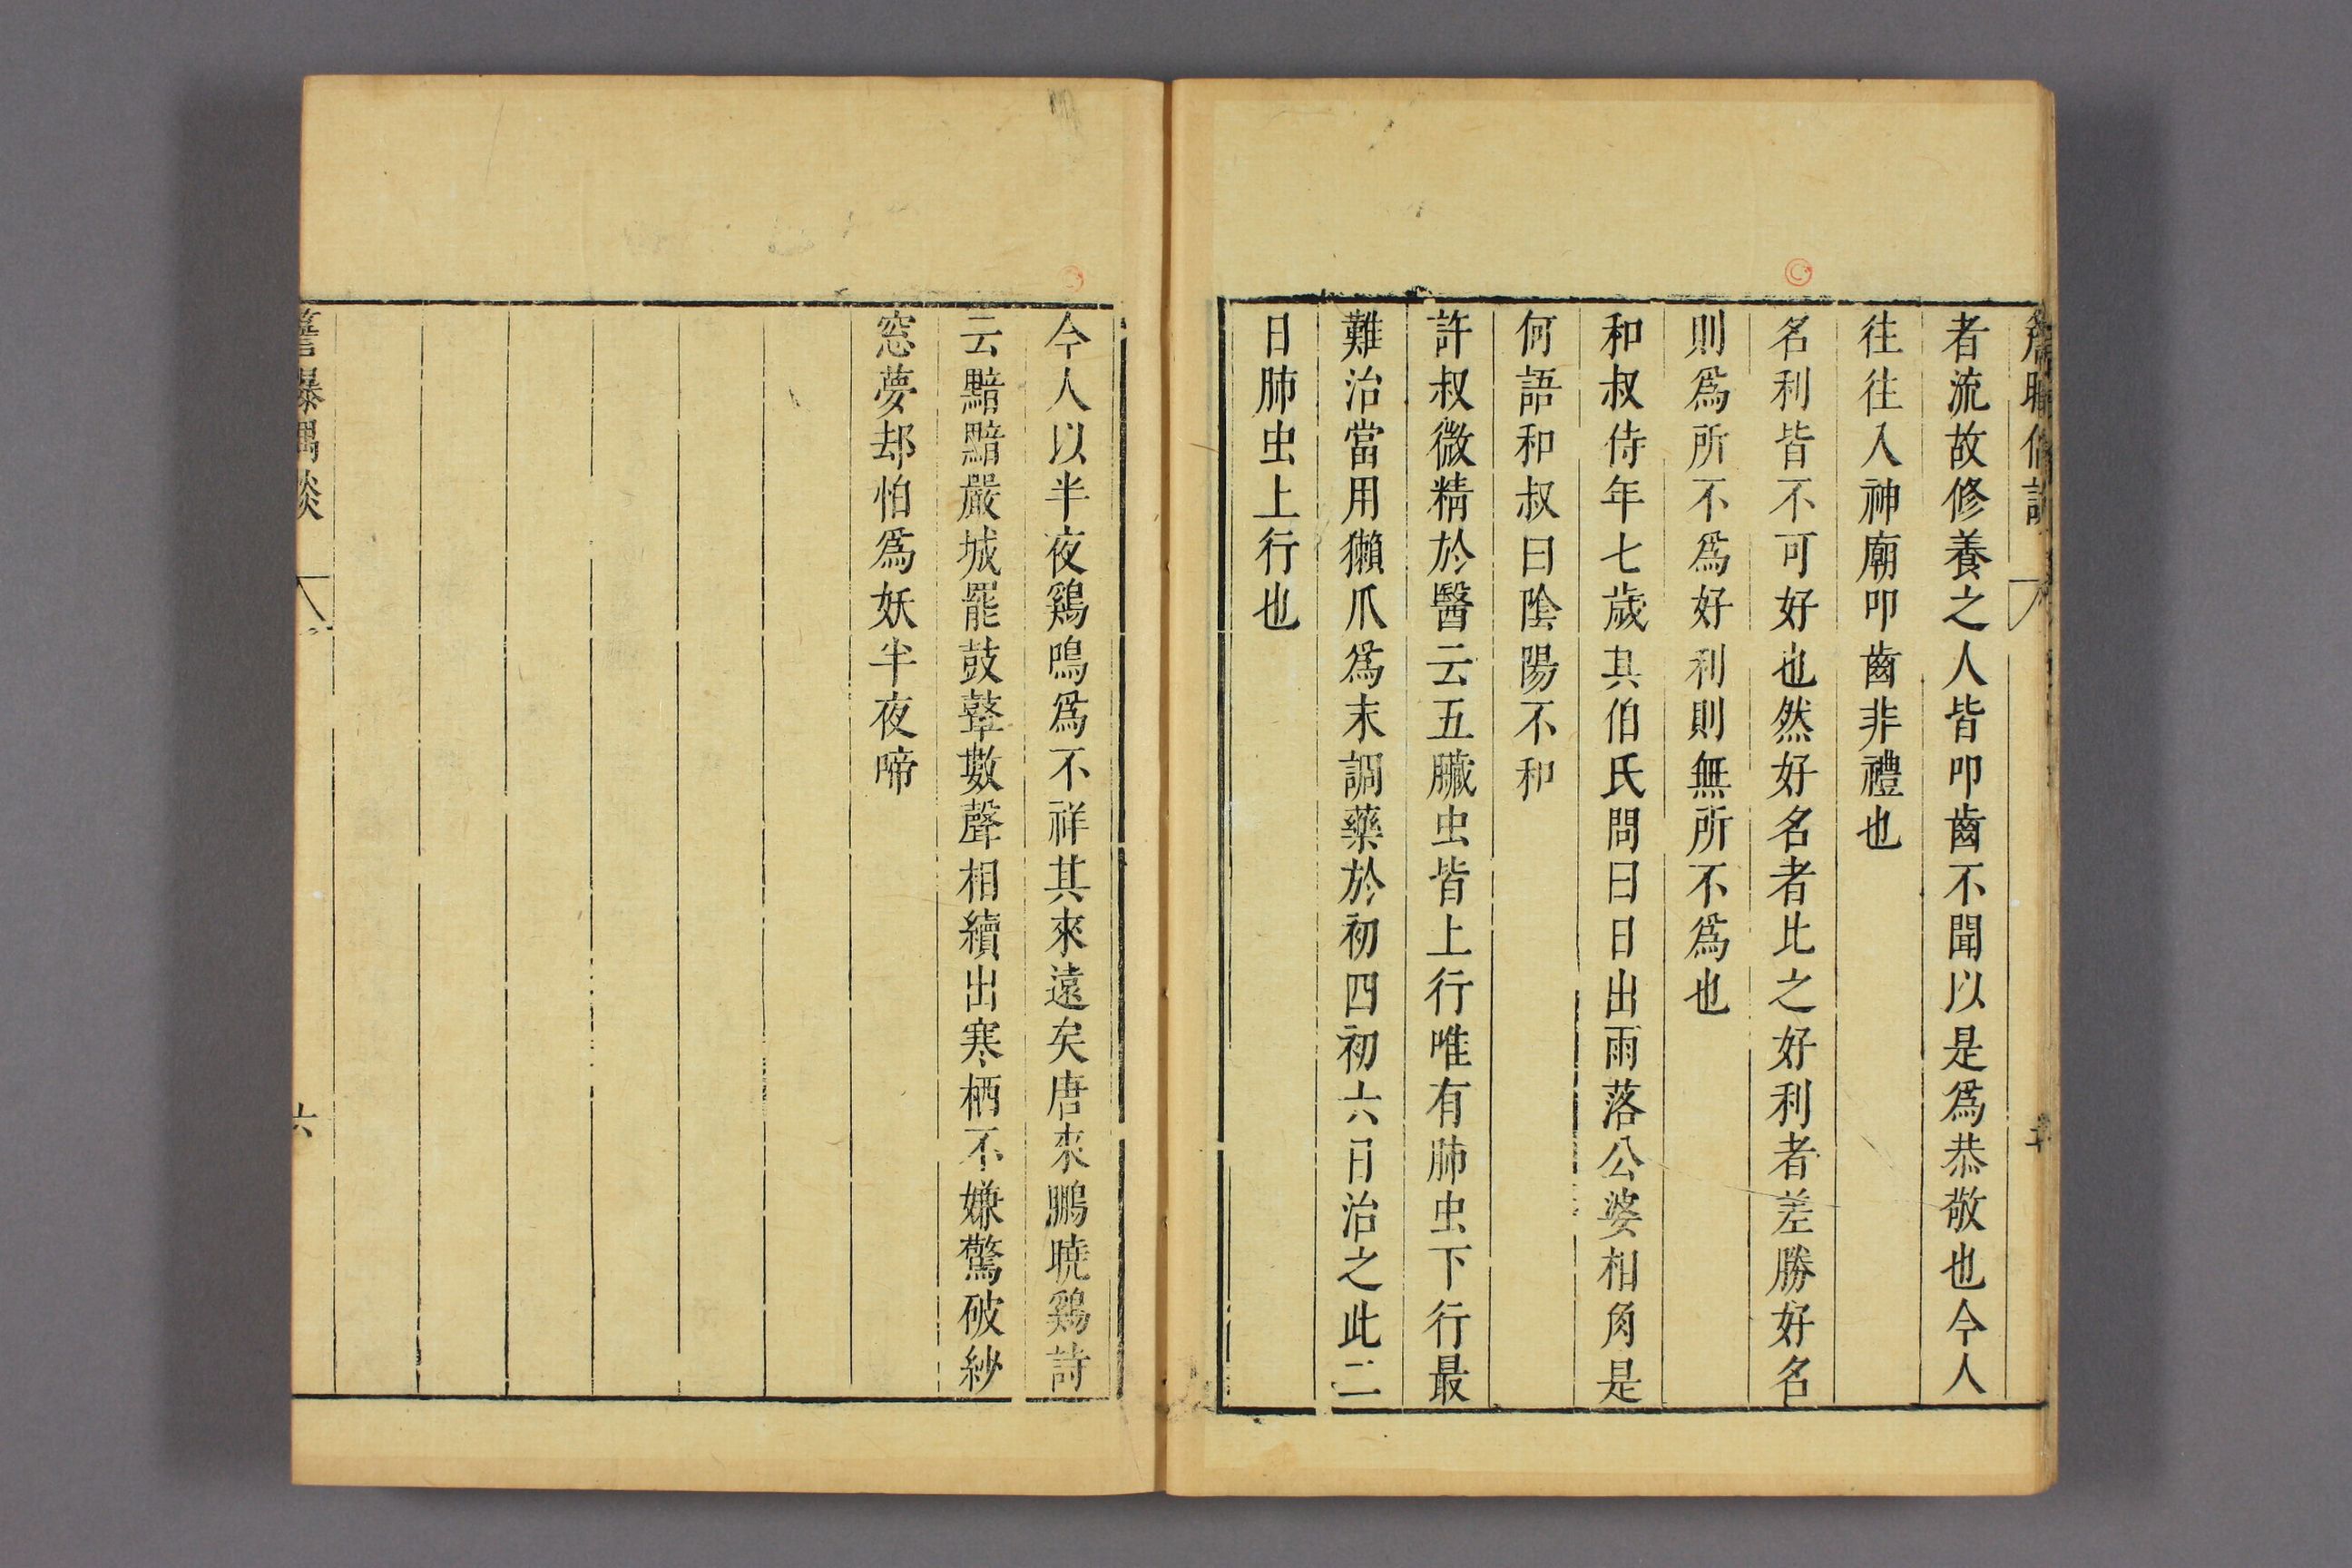 者流故修養之人皆叩齒不聞以是爲恭敬也今人
往往入神廟叩齒非禮也
名利皆不可好也然好名者比之好利者差勝好名
則爲所不爲好利則無所不爲也
和叔侍年七歲其伯氏問曰日出雨落公婆相角是
何語和叔曰陰陽不和
許叔微精於醫云五臟虫皆上行唯有肺虫下行最
難治當用獺爪爲末調藥於初四初六日治之此二
日肺虫上行也
今人以半夜鷄鳴爲不祥其來遠矣唐來鵬曉鷄詩
云黯黯嚴城罷鼓鼙數聲相續出寒栖不嫌驚破紗
窓夢却怕爲妖半夜啼
六